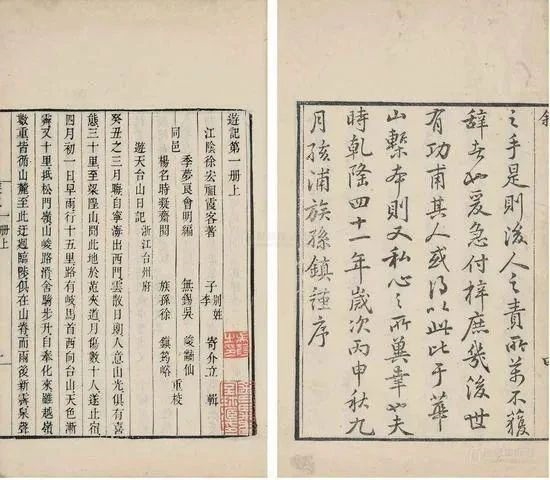 之手是則後人之責所萬不獲
辭者也爰急付梓庶幾後世
有功甫其人或得以此比于華
山槧本則又私心之所冀幸也夫
時乾隆四十一年歲次丙申秋九
月孩浦族孫鎮謹序
遊記第一冊上
江陰徐宏祖霞客著 子李別姓寄介立 輯
季夢良會明編 無錫吳 峻黼仙
同邑 重校
楊名時凝齋閱 族孫徐 鎮筠峪
遊天台山日記 浙江台州府
癸丑之三月晦自寧海出西門雲散日朗人意山光俱有喜
態三十里至梁隍山聞此地於菟夾道月傷數十人遂止宿
四月初一日早雨行十五里路有岐馬首西向台山天色漸
霽又十里抵松門嶺山峻路滑舍騎步行自奉化來雖越嶺
數重皆循山麓至此迂迴臨陟俱在山脊而雨後新霽泉聲